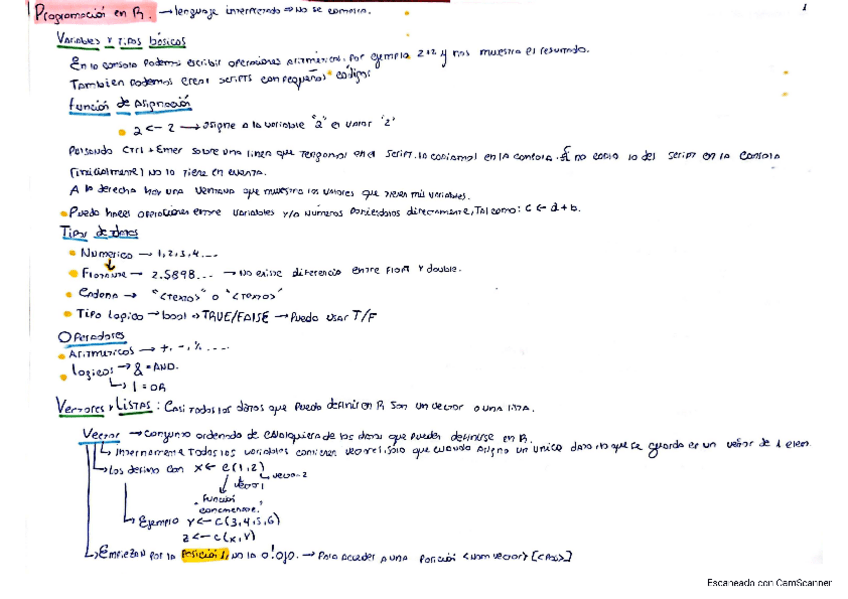 Programación en R. → lenguaje interpretado ⇒ No se compila. 1
Variables y Tipos básicos
En la consola podemos escribir operaciones aritméticas. Por ejemplo 2+2 y nos muestra el resultado.
Tambien podemos crear scripts con pequeños códigos
Función de Asignación
a <- 2 → asigna a la variable "a" el valor '2'
Pulsando Ctrl + Enter sobre una linea que tengamos en el script, lo copiamos en la consola. Si no copio lo del script en la consola
(inicialmente) no lo tiene en cuenta.
A la derecha hay una ventana que muestra los valores que tienen mis variables.
Puedo hacer operaciones entre variables y/o números poniendolos directamente, Tal como: c <- a + b.
Tipos de datos
Numerico → 1, 2, 3, 4 ...
Flotante → 2.5898... → No existe diferencia entre float y double.
Cadena → "<texto>" o '<texto>'
Tipo logico → bool → TRUE/FALSE → Puedo usar T/F
Operadores
Aritméticos → +, -, ...
logicos → & = AND.
↳ | = OR
Vectores y Listas: Casi todos los datos que puedo definir en R son un vector o una lista.
Vector → Conjunto ordenado de cualquiera de los datos que pueden definirse en R.
↳ Internamente todas las variables contienen vectores, solo que cuando asigno un unico dato, lo que se guarda es un vector de 1 elem.
↳ Los defino con x <- c(1,2)
vector 1
"Función
concatenate."
↳ Ejemplo y <- c(3,4,5,6)
z <- c(x,y)
↳ Empiezan por la posición 1, no la 0! ojo. → Para acceder a una posición <nom vector> [<pos>]
Escaneado con CamScanner